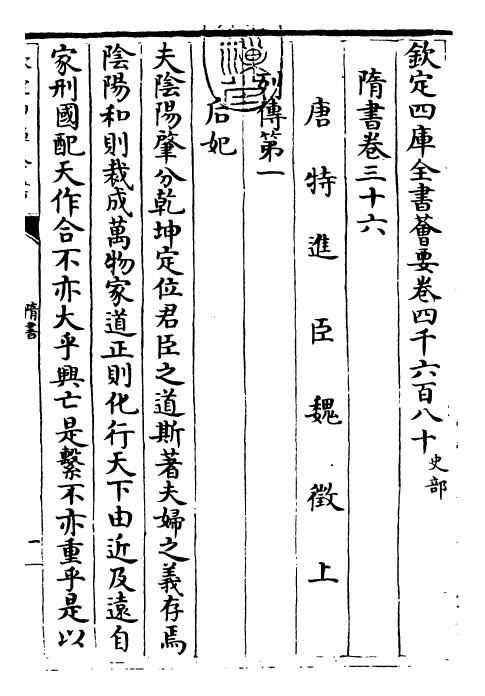 欽定四庫全書薈要卷四千六百八十史部
隋書卷三十六
唐特進臣魏徵上
列傳第一
后妃
夫陰陽肇分乾坤定位君臣之道斯著夫婦之義存焉
陰陽和則裁成萬物家道正則化行天下由近及遠自
家刑國配天作合不亦大乎興亡是繫不亦重乎是以
隋書
一